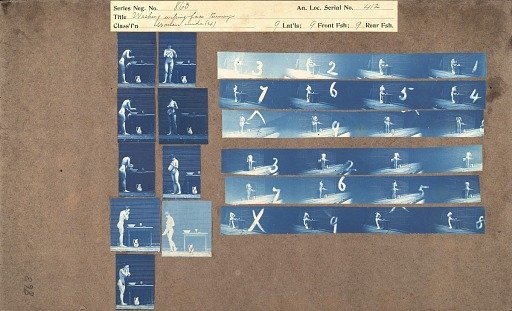 Series Neg. No. An. Loc. Serial No. 412
Title Washing wiping face turning
Class'f'n Woman nude 9 Lat'ls; 9 Front Fsh; 9 Rear Fsh.
3 2 1
7 6 5 4
9
3 2
7 6 5
X 9 8